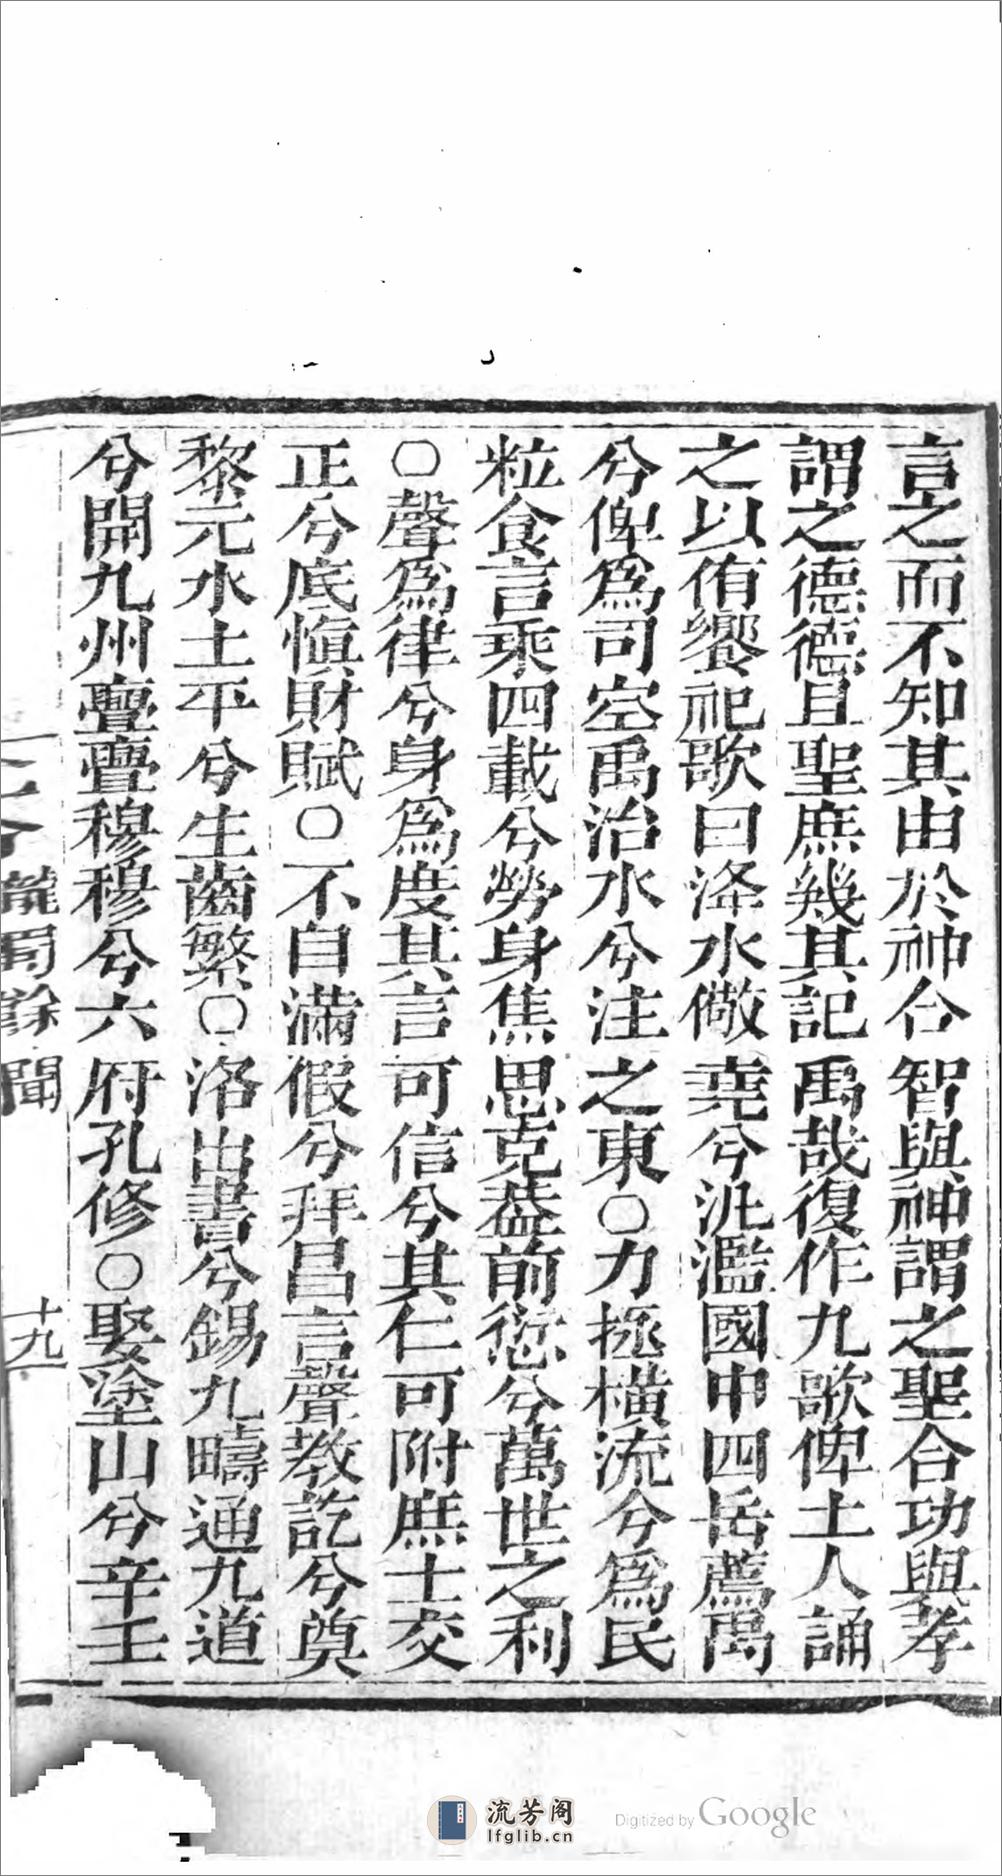 言之而不知其由於神合智與神謂之聖合功與孝
謂之德德且聖庶幾其記禹哉復作九歌俾土人誦
之以侑饗祀歌曰洚水儆堯兮汎濫國中四岳薦禹
兮俾爲司空禹治水兮注之東○力拯橫流兮爲民
粒食言乘四載兮勞身焦思克蓋前愆兮萬世之利
○聲爲律兮身爲度其言可信兮其仁可附庶士交
正兮底愼財賦○不自滿假兮拜昌言聲教訖兮奠
黎元水土平兮生齒繁○洛出書兮錫九疇通九道
兮開九州亹亹穆穆兮六府孔修○娶塗山兮辛壬
隴蜀餘聞
十九
流芳阁
lfglib.cn
Digitized by Google